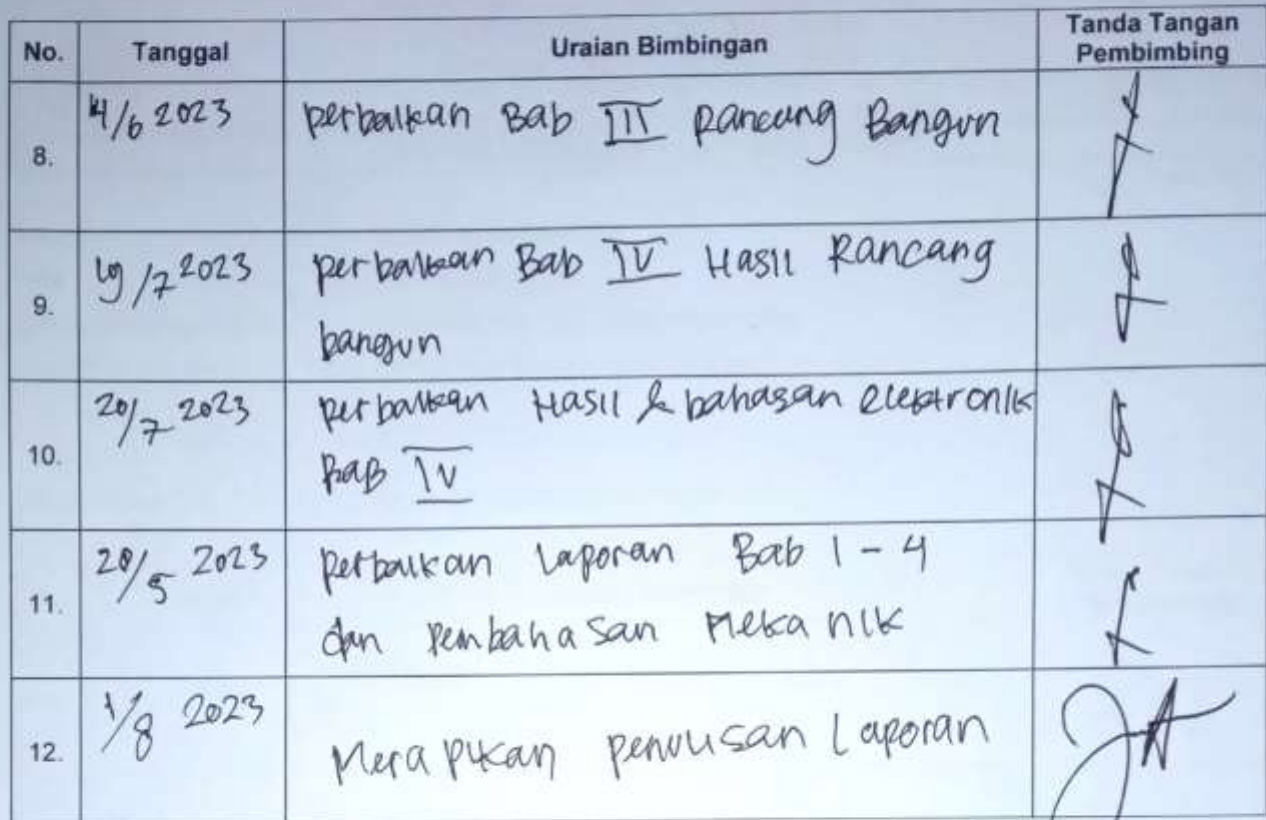 No. Tanggal Uraian Bimbingan Tanda Tangan
Pembimbing
8. 4/6 2023 perbaikan Bab III Rancang Bangun
9. 19/7 2023 perbaikan Bab IV Hasil Rancang
bangun
10. 20/7 2023 perbaikan Hasil & bahasan elektronik
BAB IV
11. 20/5 2023 perbaikan laporan Bab 1 - 4
dan pembahasan Mekanik
12. 1/8 2023 Merapikan penulisan laporan